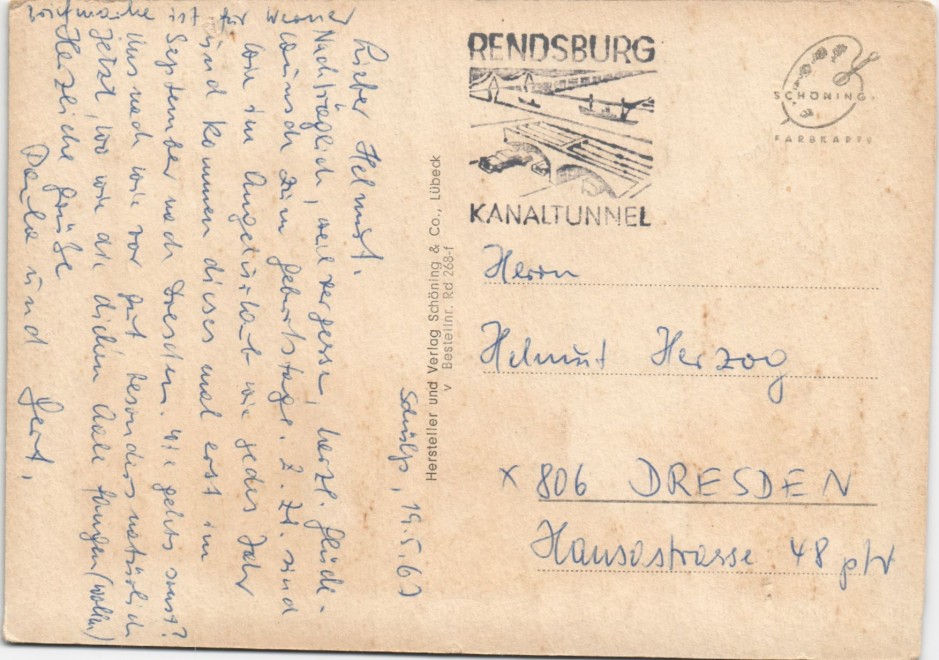 Briefmarke ist für Werner
Schülp, 19.5.67
Lieber Helmut.
Nachträglich, weil vergessen, herzl. Glück-
wunsch zum Geburtstage. Z. Zt. sind
wir im Angelurlaub wie jedes Jahr
und kommen dieses mal erst im
September nach Dresden. Wie gehts sonst?
Uns nach wie vor gut besonders natürlich
jetzt, wo wir die dicken Aale fangen (wollen)
Herzliche Grüße
und Gert.
Hersteller und Verlag Schöning & Co., Lübeck
v Bestellnr. Rd 268-f
RENDSBURG
KANALTUNNEL
SCHÖNING
FARBKARTE
Herrn
Helmut Herzog
X 806 DRESDEN
Hansastrasse 48 ptr